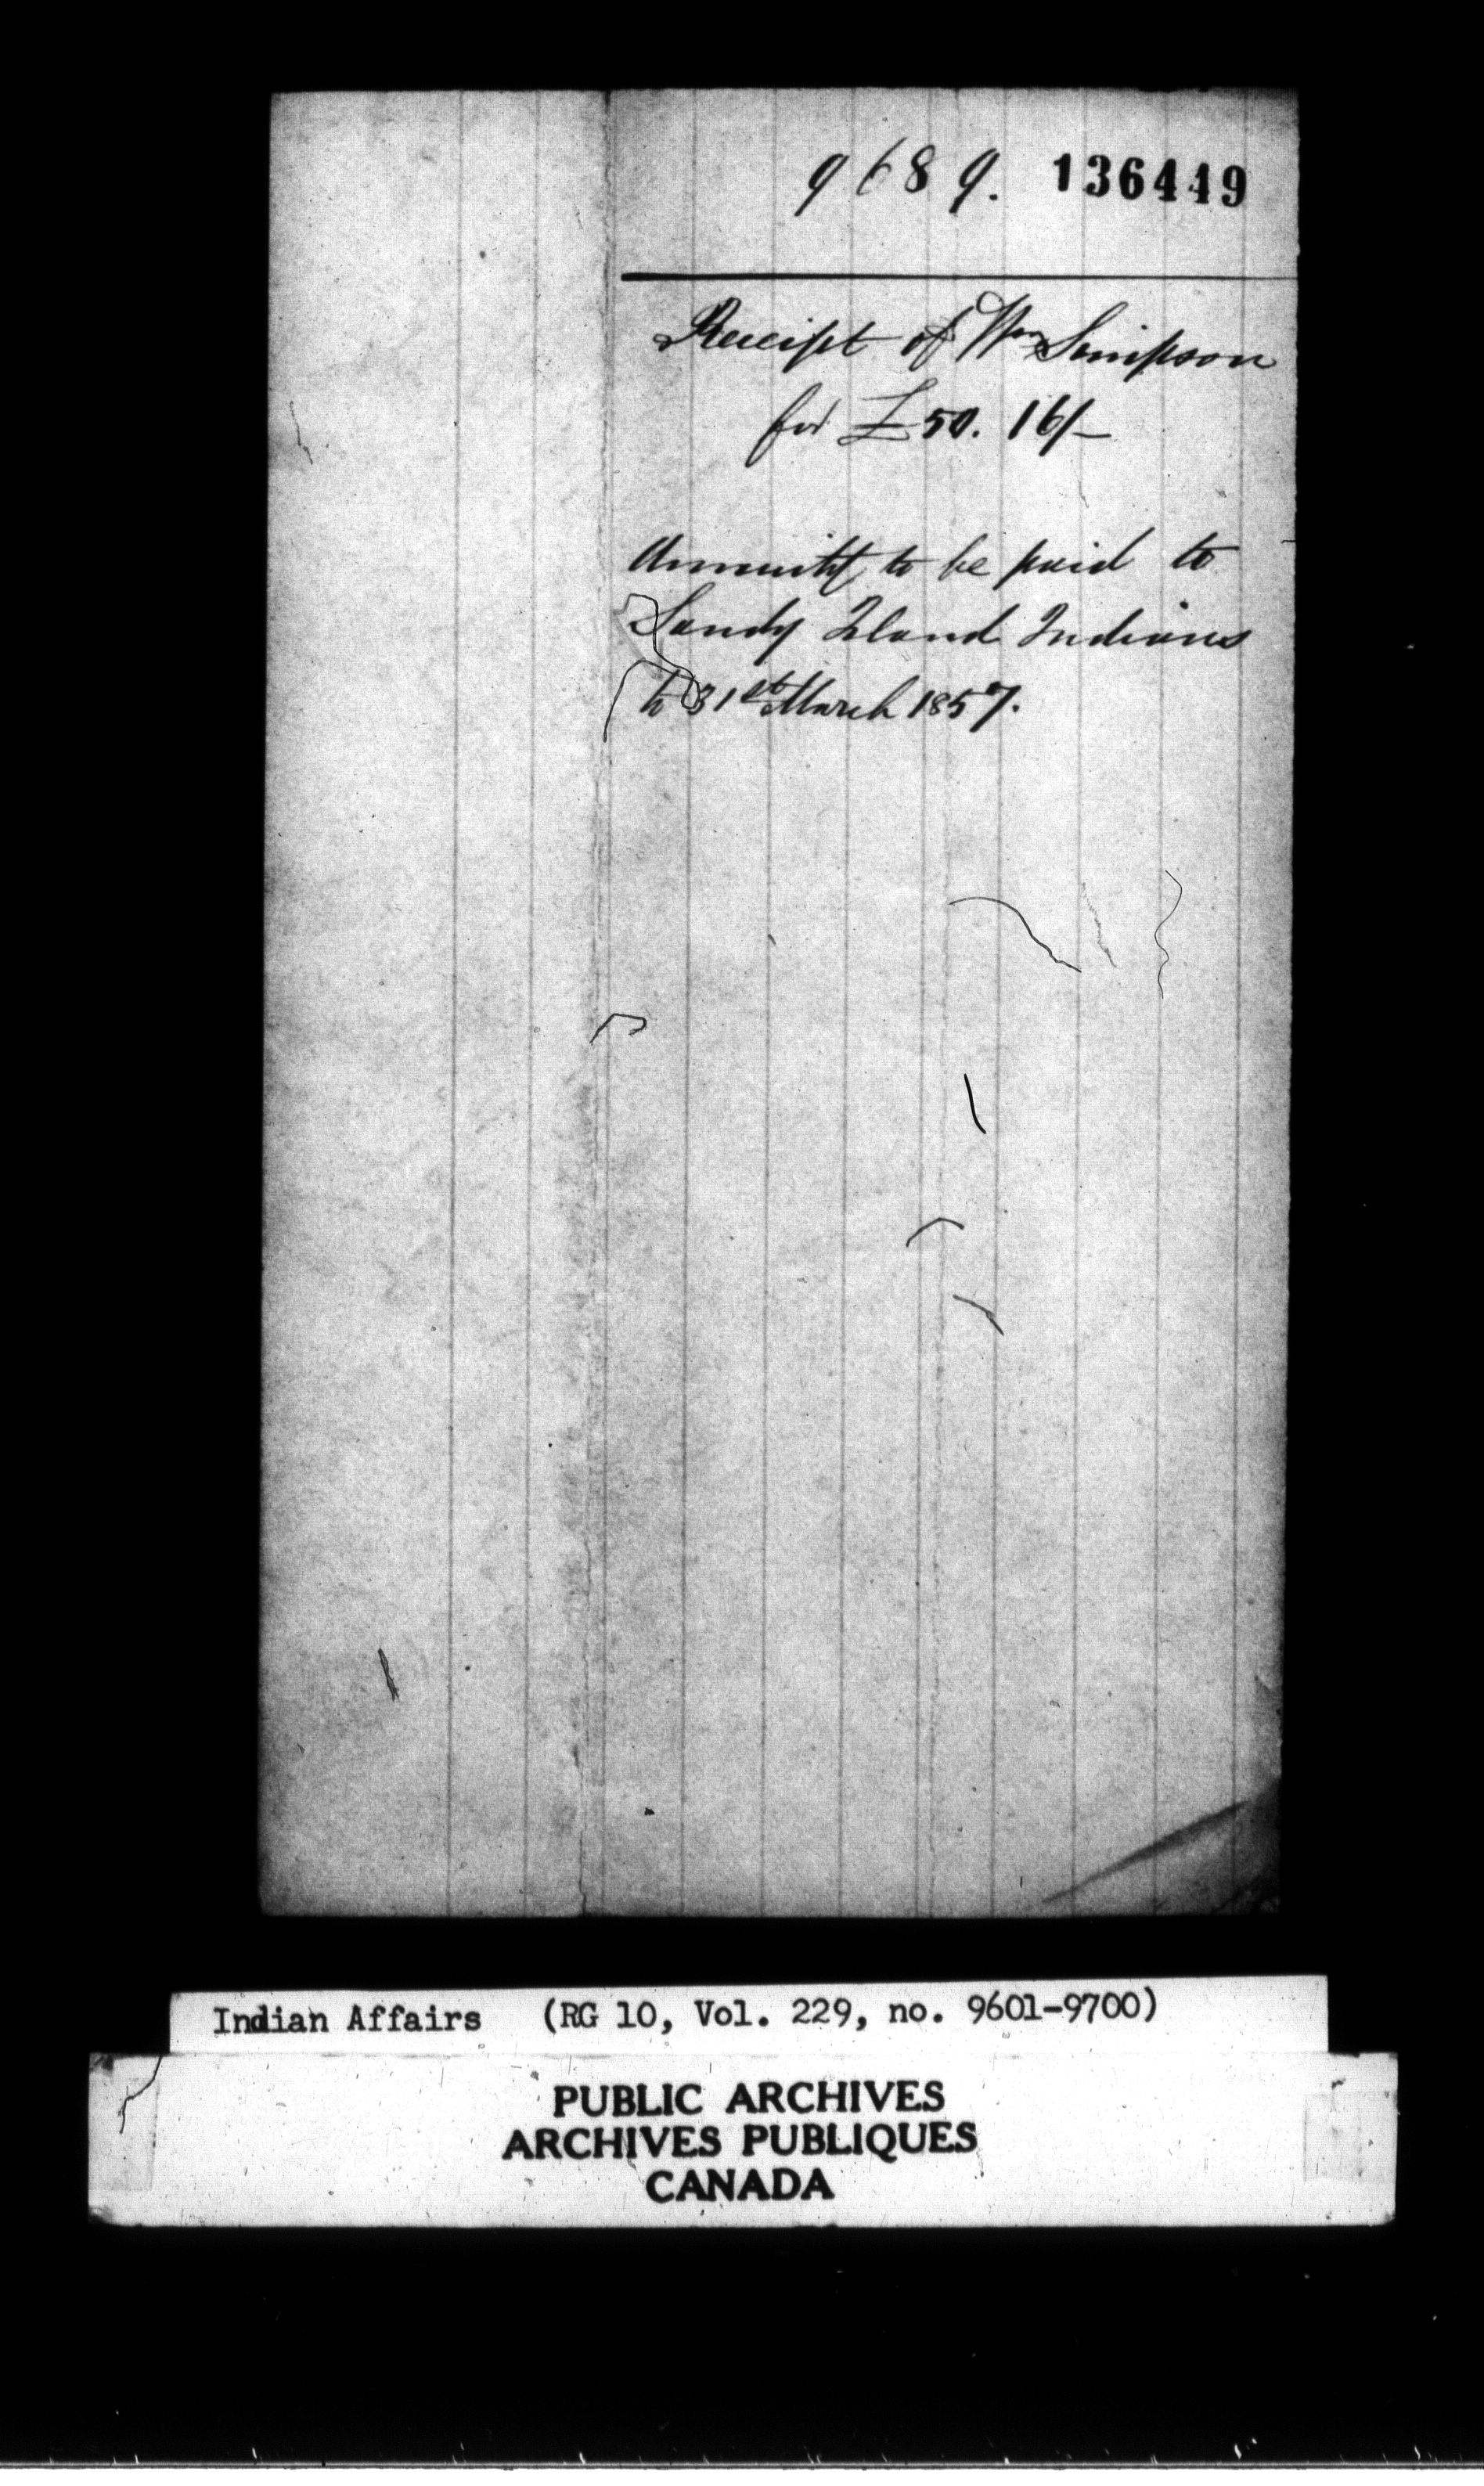 9689. 136449
Receipt of Wm Simpson
for £50. 16/-
Annuity to be paid to
Sandy Island Indians
to 31st March 1857.
Indian Affairs (RG 10, Vol. 229, no. 9601-9700)
PUBLIC ARCHIVES
ARCHIVES PUBLIQUES
CANADA